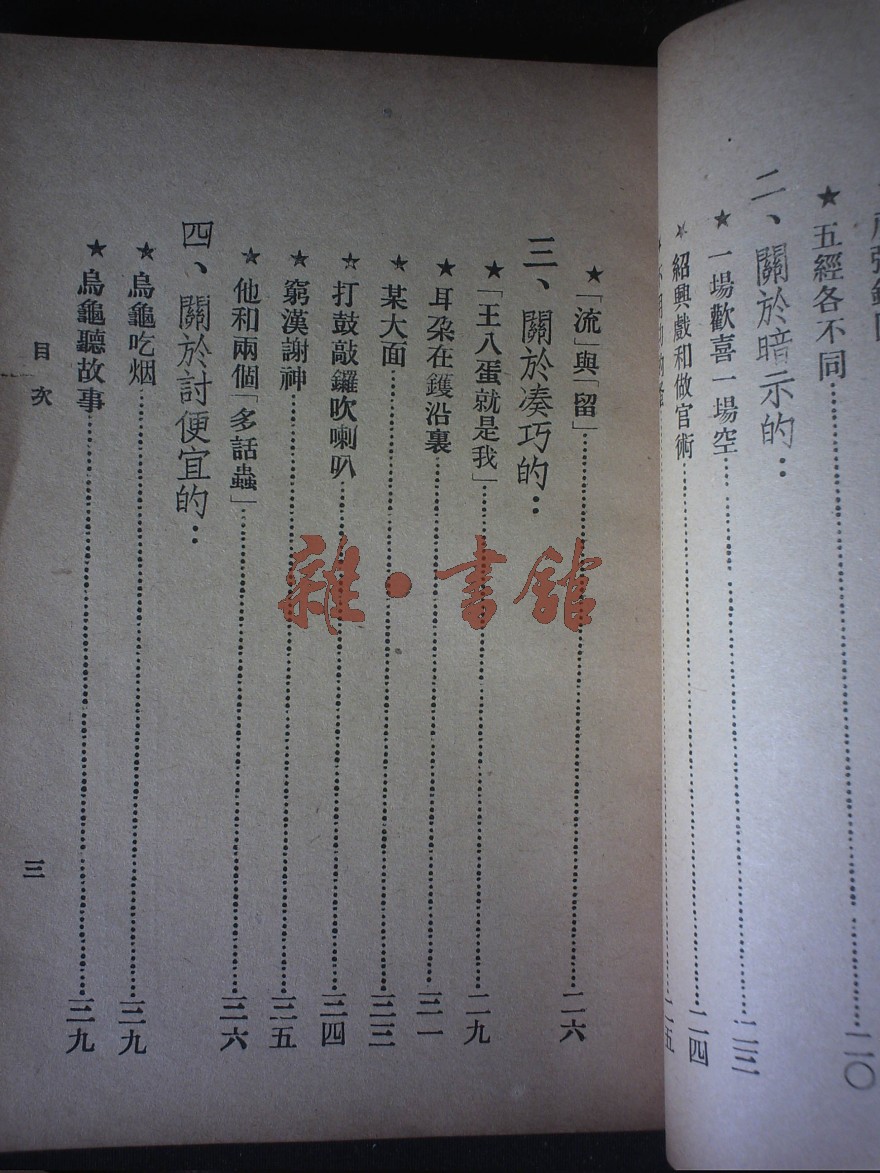 ★五經各不同……二〇
二、關於暗示的：
★一場歡喜一場空……二三
★紹興戲和做官術……二四
二五
★「流」與「留」……二六
三、關於凑巧的：
★「王八蛋就是我」……二九
★耳朶在鑊沿裏……三一
★某大面……三三
★打鼓敲鑼吹喇叭……三四
★窮漢謝神……三五
★他和兩個「多話蟲」……三六
四、關於討便宜的：
★烏龜吃烟……三九
★烏龜聽故事……三九
目次
三
雜·書館